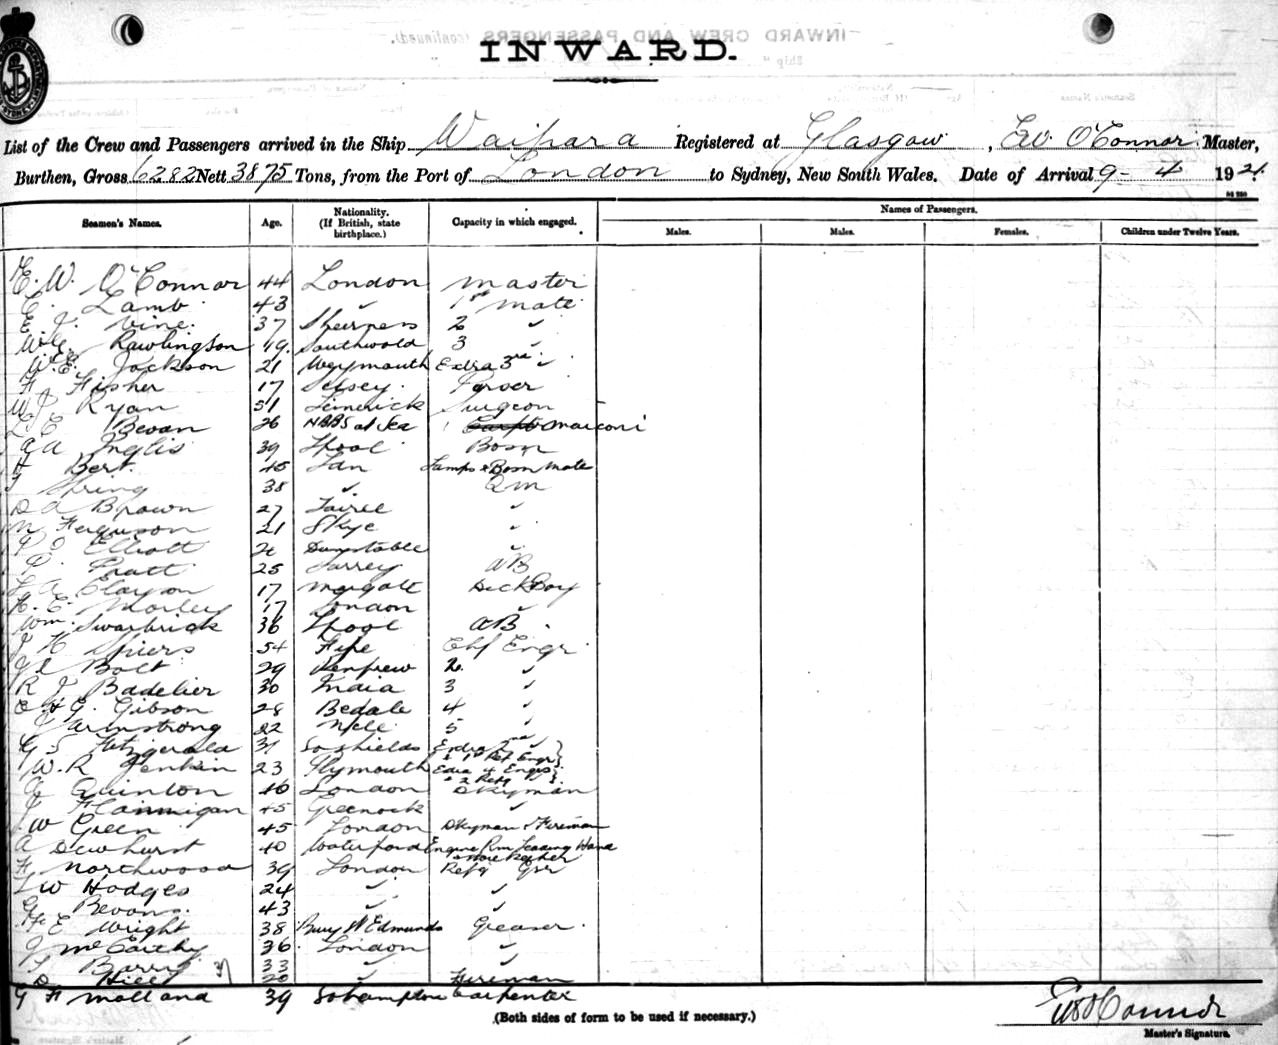 INWARD.
List of the Crew and Passengers arrived in the Ship Waipara Registered at Glasgow, E.W. O'Connor Master,
Burthen, Gross 6282 Nett 3875 Tons, from the Port of London to Sydney, New South Wales. Date of Arrival 9-4 1921.
Seamen's Names. Age. Nationality. (If British, state birthplace.) Capacity in which engaged. Names of Passengers.
Males. Males. Females. Children under Twelve Years.
E. W. O'Connor 44 London master
E. Lamb 43 " 1st mate
E. J. Vine. 37 Sheerness 2 "
Rawlingson 19. Southwold 3 "
W. E. Jackson 21 Weymouth Extra 3rd "
F. Fisher 17 Selsey. Purser
W. J. Ryan 51 Limerick Surgeon
L E Bevan 26 HBBS at Sea Marconi
A A Inglis 39 Lpool Bosn
H Bert. 45 Lamps & Bosn Mate
F Spring 38 " QM
D A Brown 27 Tairee "
M Ferguson 21 Skye "
P J Elliott Dunstable "
P. Pratt 25 Surrey AB
L A Clayson 17 Margate Deck Boy
H. E. Morley 17 London "
Wm. Swarbrick 36 Lpool AB.
J H Spiers 54 Fife Chf Engr.
J L Bolt 29 Renfrew 2. "
R J Badelier 30 India 3 "
E H G. Gibson 28 Bedale 4 "
J Armstrong 22 5 "
G S Fitzgerald 31 So Shields Extra 2nd " & 1st Ref Engr
W. R Jenkin 23 Plymouth Extra 4 Engr & 2 Refg
A Quinton 46 London Dkyman
J Flannigan 45 Greenock "
J W Green 45 London Dkyman & Fireman
A Dewhurst 40 Waterford Engine Rm Leading Hand & Storekeeper
F Northwood 39 London Refg Gsr
T W Hodges 24 " "
G Bevans. 43 " "
H E Wright 38 Bury St Edmunds Greaser.
J McCarthy 36. London "
T Barry 33 "
D Hill 20 " Fireman
G H Molland 39 Sohampton Carpenter
(Both sides of form to be used if necessary.)
E W O'Connor
Master's Signature.